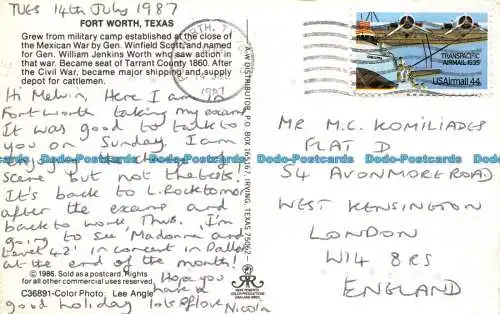 TUES 14th July 1987
FORT WORTH, TEXAS
Grew from military camp established at the close of
the Mexican War by Gen. Winfield Scott, and named
for Gen. William Jenkins Worth who saw action in
that war. Became seat of Tarrant County 1860. After
the Civil War, became major shipping and supply
depot for cattlemen.
Hi Melvin, Here I am in
Fort Worth taking my exams
It was good to talk to
you on Sunday. I am
enjoying the
scene but not the tests!
It's back to L. Rock tomor
after the exams and
back to work Thurs. I'm
going to see 'Madonna and
Level 42' in concert in Dallas
at the end of the month!
Hope you
have a
good holiday lots of love
Nicola
© 1986. Sold as a postcard. Rights
for all other commercial uses reserved.
C36891-Color Photo: Lee Angle
A-W DISTRIBUTOR, P.O. BOX 165167, IRVING, TEXAS 75062
1987
TRANSPACIFIC
AIRMAIL 1935
USAirmail 44
MR M.C. KOMILIADES
FLAT D
54 AVONMORE ROAD
WEST KENSINGTON
LONDON
W14 8RS
ENGLAND
Dodo-Postcards Dodo-Postcards Dodo-Postcards Dodo-Postcards